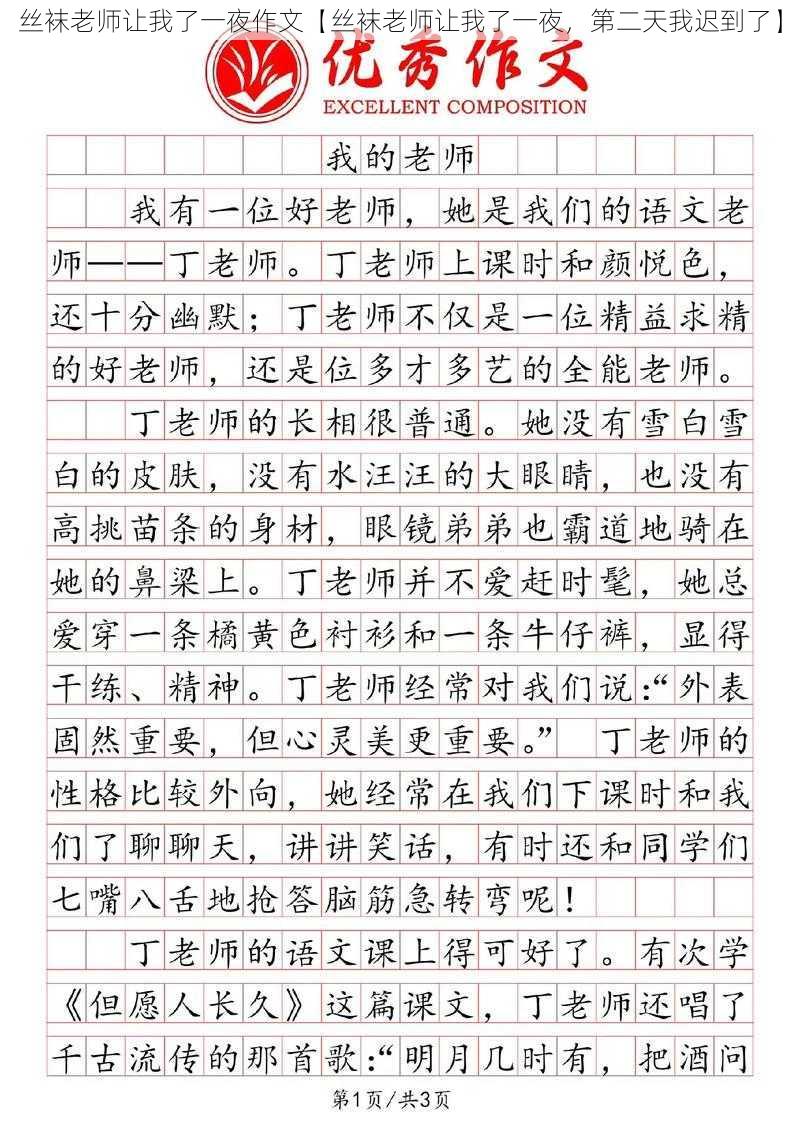 丝袜老师让我了一夜作文【丝袜老师让我了一夜，第二天我迟到了】
优秀作文
EXCELLENT COMPOSITION
我的老师
我有一位好老师，她是我们的语文老
师——丁老师。丁老师上课时和颜悦色，
还十分幽默；丁老师不仅是一位精益求精
的好老师，还是位多才多艺的全能老师。
丁老师的长相很普通。她没有雪白雪
白的皮肤，没有水汪汪的大眼睛，也没有
高挑苗条的身材，眼镜弟弟也霸道地骑在
她的鼻梁上。丁老师并不爱赶时髦，她总
爱穿一条橘黄色衬衫和一条牛仔裤，显得
干练、精神。丁老师经常对我们说：“外表
固然重要，但心灵美更重要。” 丁老师的
性格比较外向，她经常在我们下课时和我
们了聊聊天，讲讲笑话，有时还和同学们
七嘴八舌地抢答脑筋急转弯呢！
丁老师的语文课上得可好了。有次学
《但愿人长久》这篇课文，丁老师还唱了
千古流传的那首歌：“明月几时有，把酒问
第1页/共3页